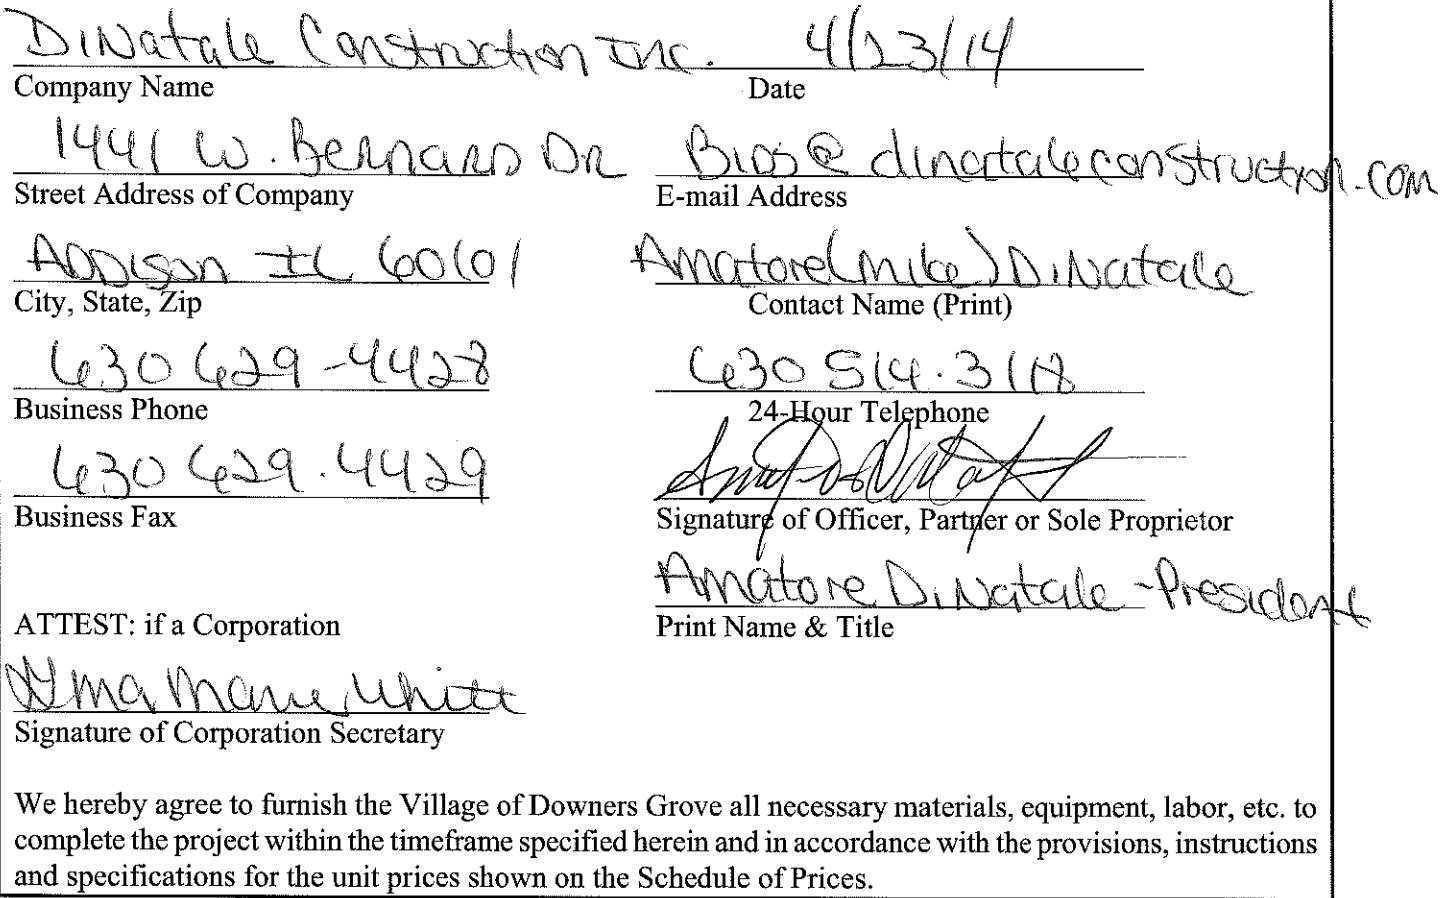 DiNatale Construction Inc. 4/23/14
Company Name Date
1441 W. Bernard Dr Bids@dinataleconstruction.com
Street Address of Company E-mail Address
Addison IL 60101 Amatore (Mike) DiNatale
City, State, Zip Contact Name (Print)
630 629-4428 630 514.3118
Business Phone 24-Hour Telephone
630 629.4429
Business Fax Signature of Officer, Partner or Sole Proprietor
Amatore DiNatale - President
ATTEST: if a Corporation Print Name & Title
Marie Whitt
Signature of Corporation Secretary
We hereby agree to furnish the Village of Downers Grove all necessary materials, equipment, labor, etc. to
complete the project within the timeframe specified herein and in accordance with the provisions, instructions
and specifications for the unit prices shown on the Schedule of Prices.